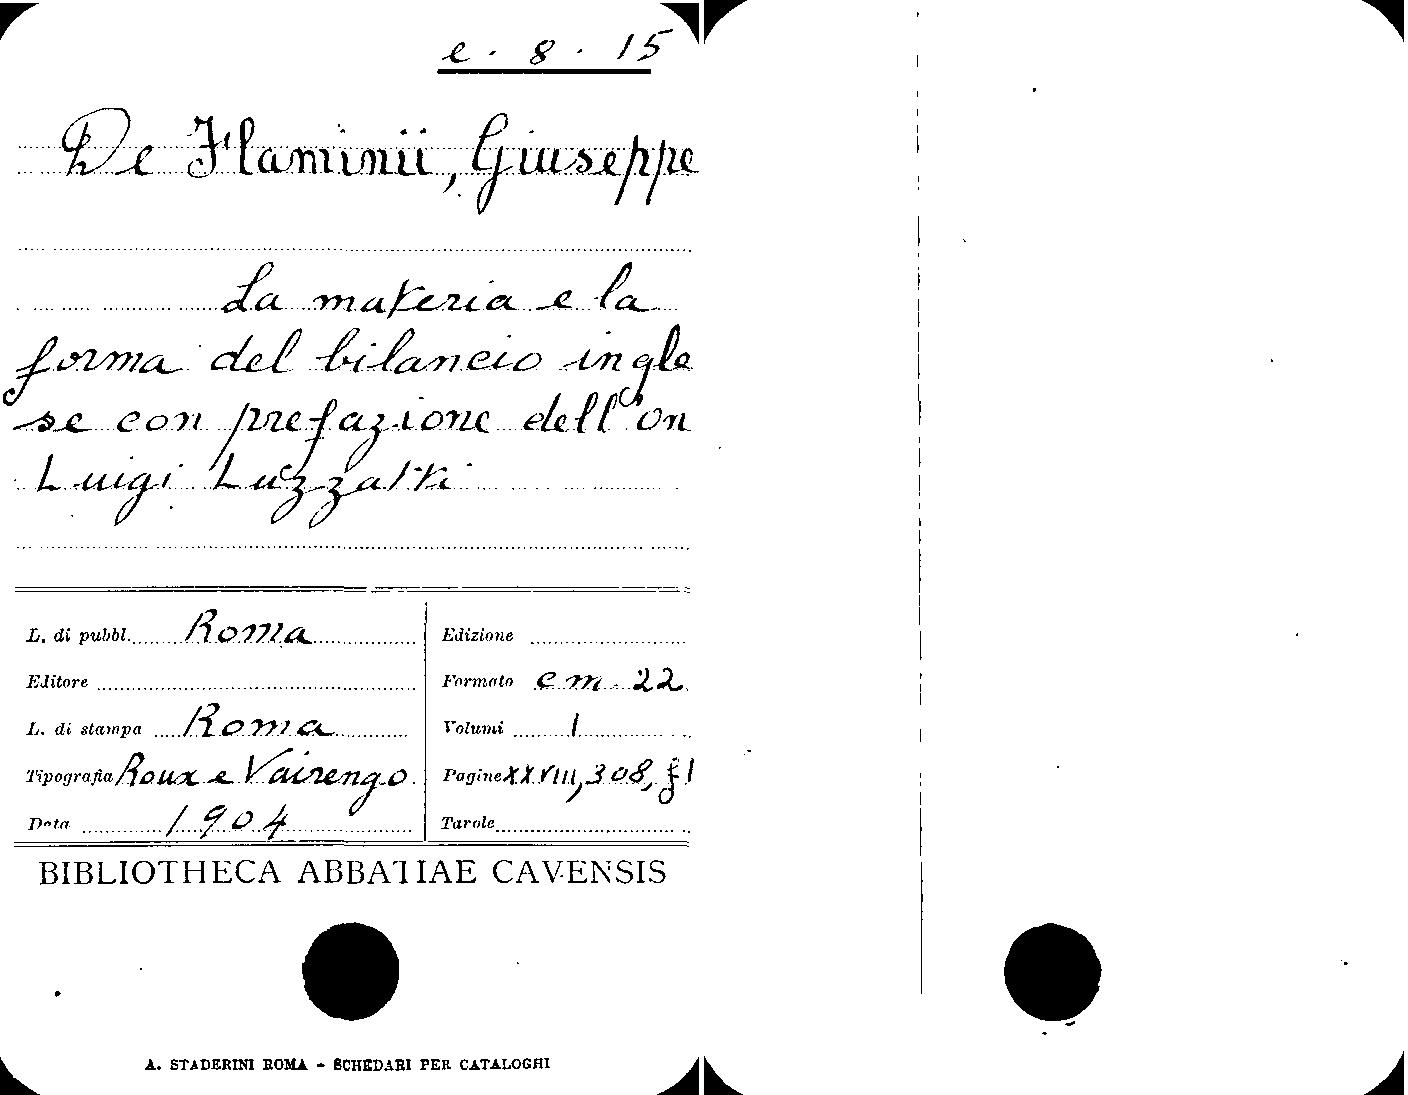 e. 8. 15
De Flaminii, Giuseppe
La materia e la
forma del bilancio ingle
se con prefazione dell'on
Luigi Luzzatti
L. di pubbl. Roma
Editore
L. di stampa Roma
Tipografia Roux e Vairengo
Data 1904
Edizione
Formato cm. 22
Volumi 1
Pagine XXVIII, 308, f 1
Tavole
BIBLIOTHECA ABBATIAE CAVENSIS
A. STADERINI ROMA - SCHEDARI PER CATALOGHI